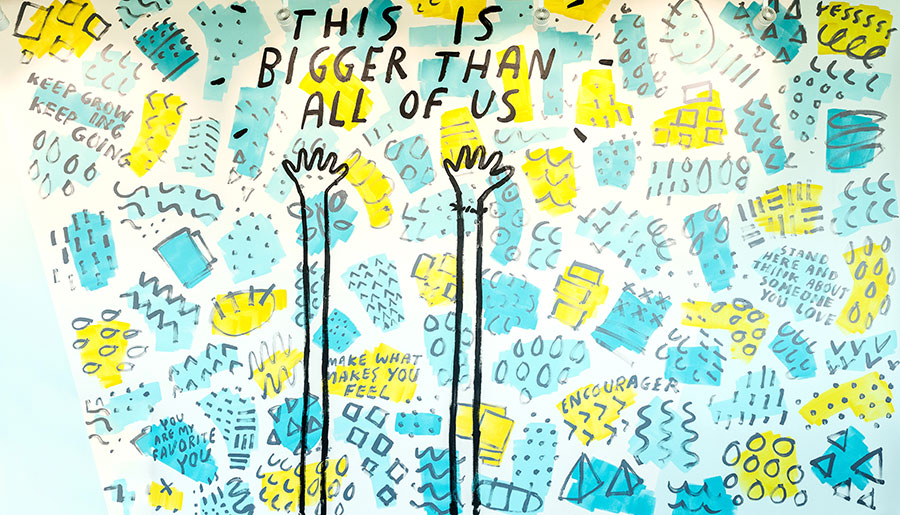 THIS IS
BIGGER THAN
ALL OF US
YESSSSS
KEEP GROW
KEEP ING
GOING
STAND
HERE AND
THINK ABOUT
SOMEONE
YOU LOVE
MAKE WHAT
MAKES YOU
FEEL
ENCOURAGER
YOU
ARE MY
FAVORITE
YOU